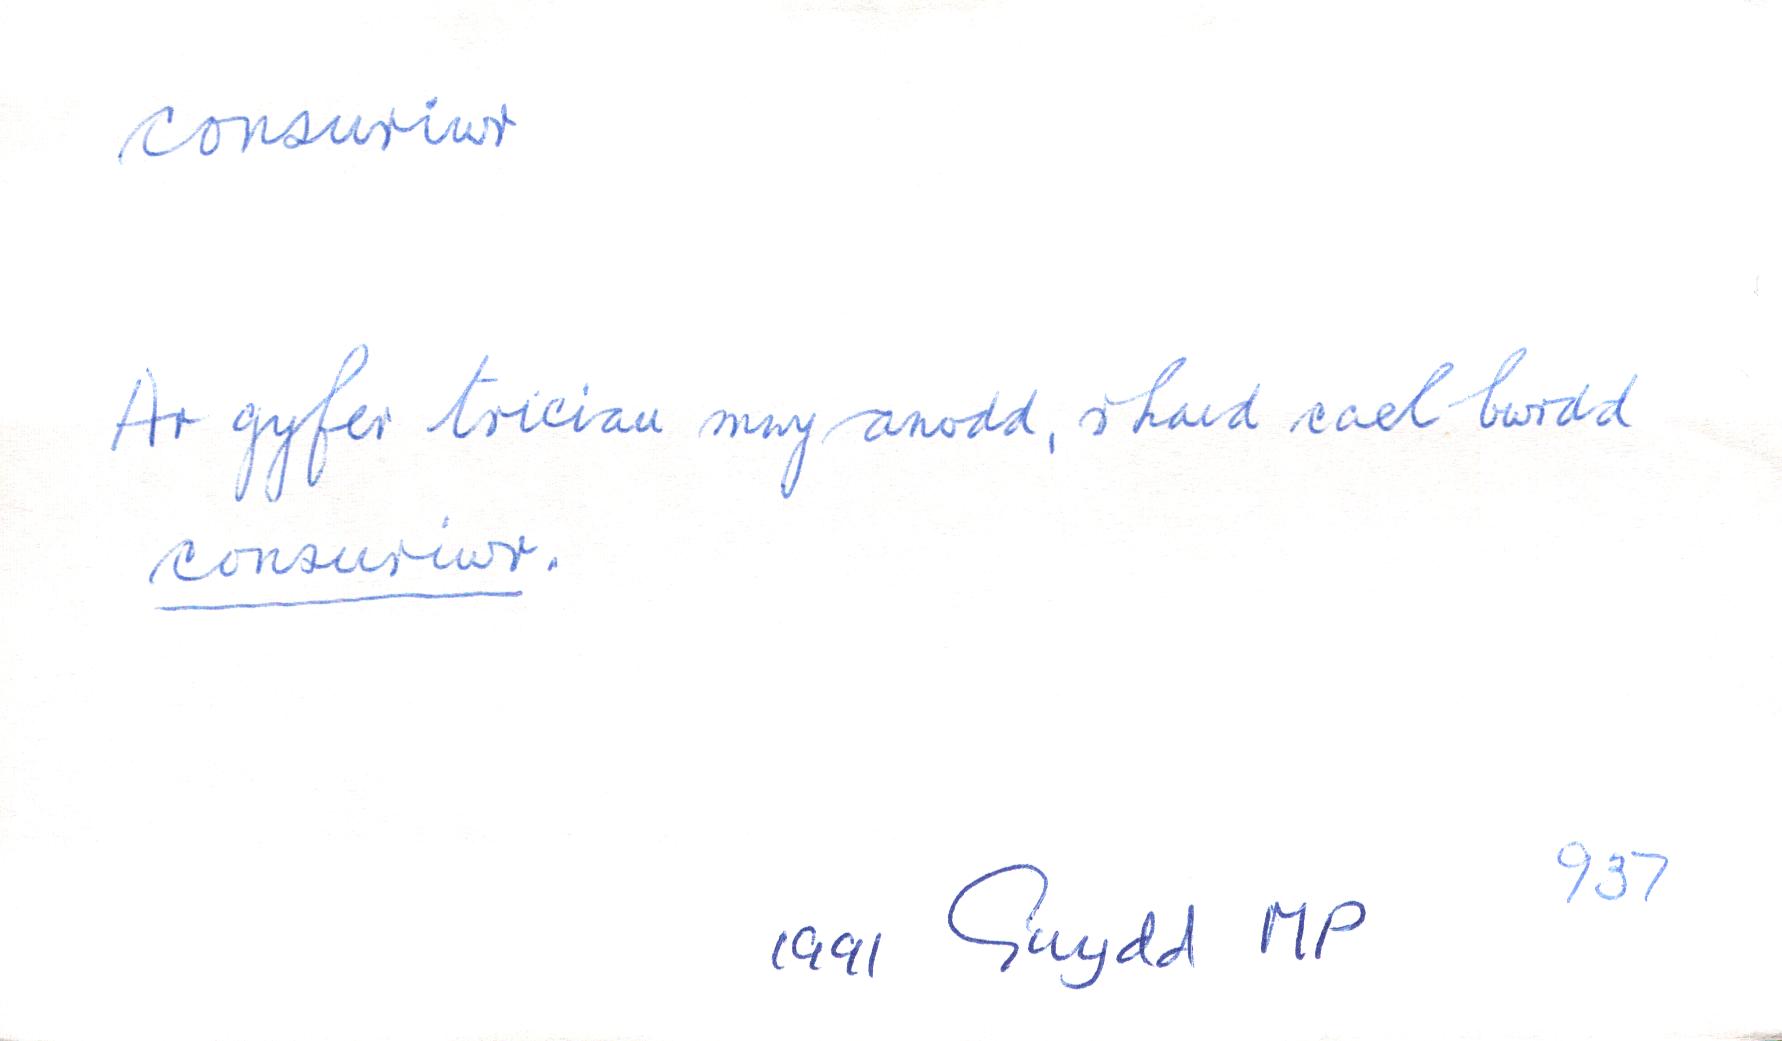 consuriwr
Ar gyfer triciau mwy anodd, rhaid cael bwrdd
consuriwr.
937
1991 Gwydd MP